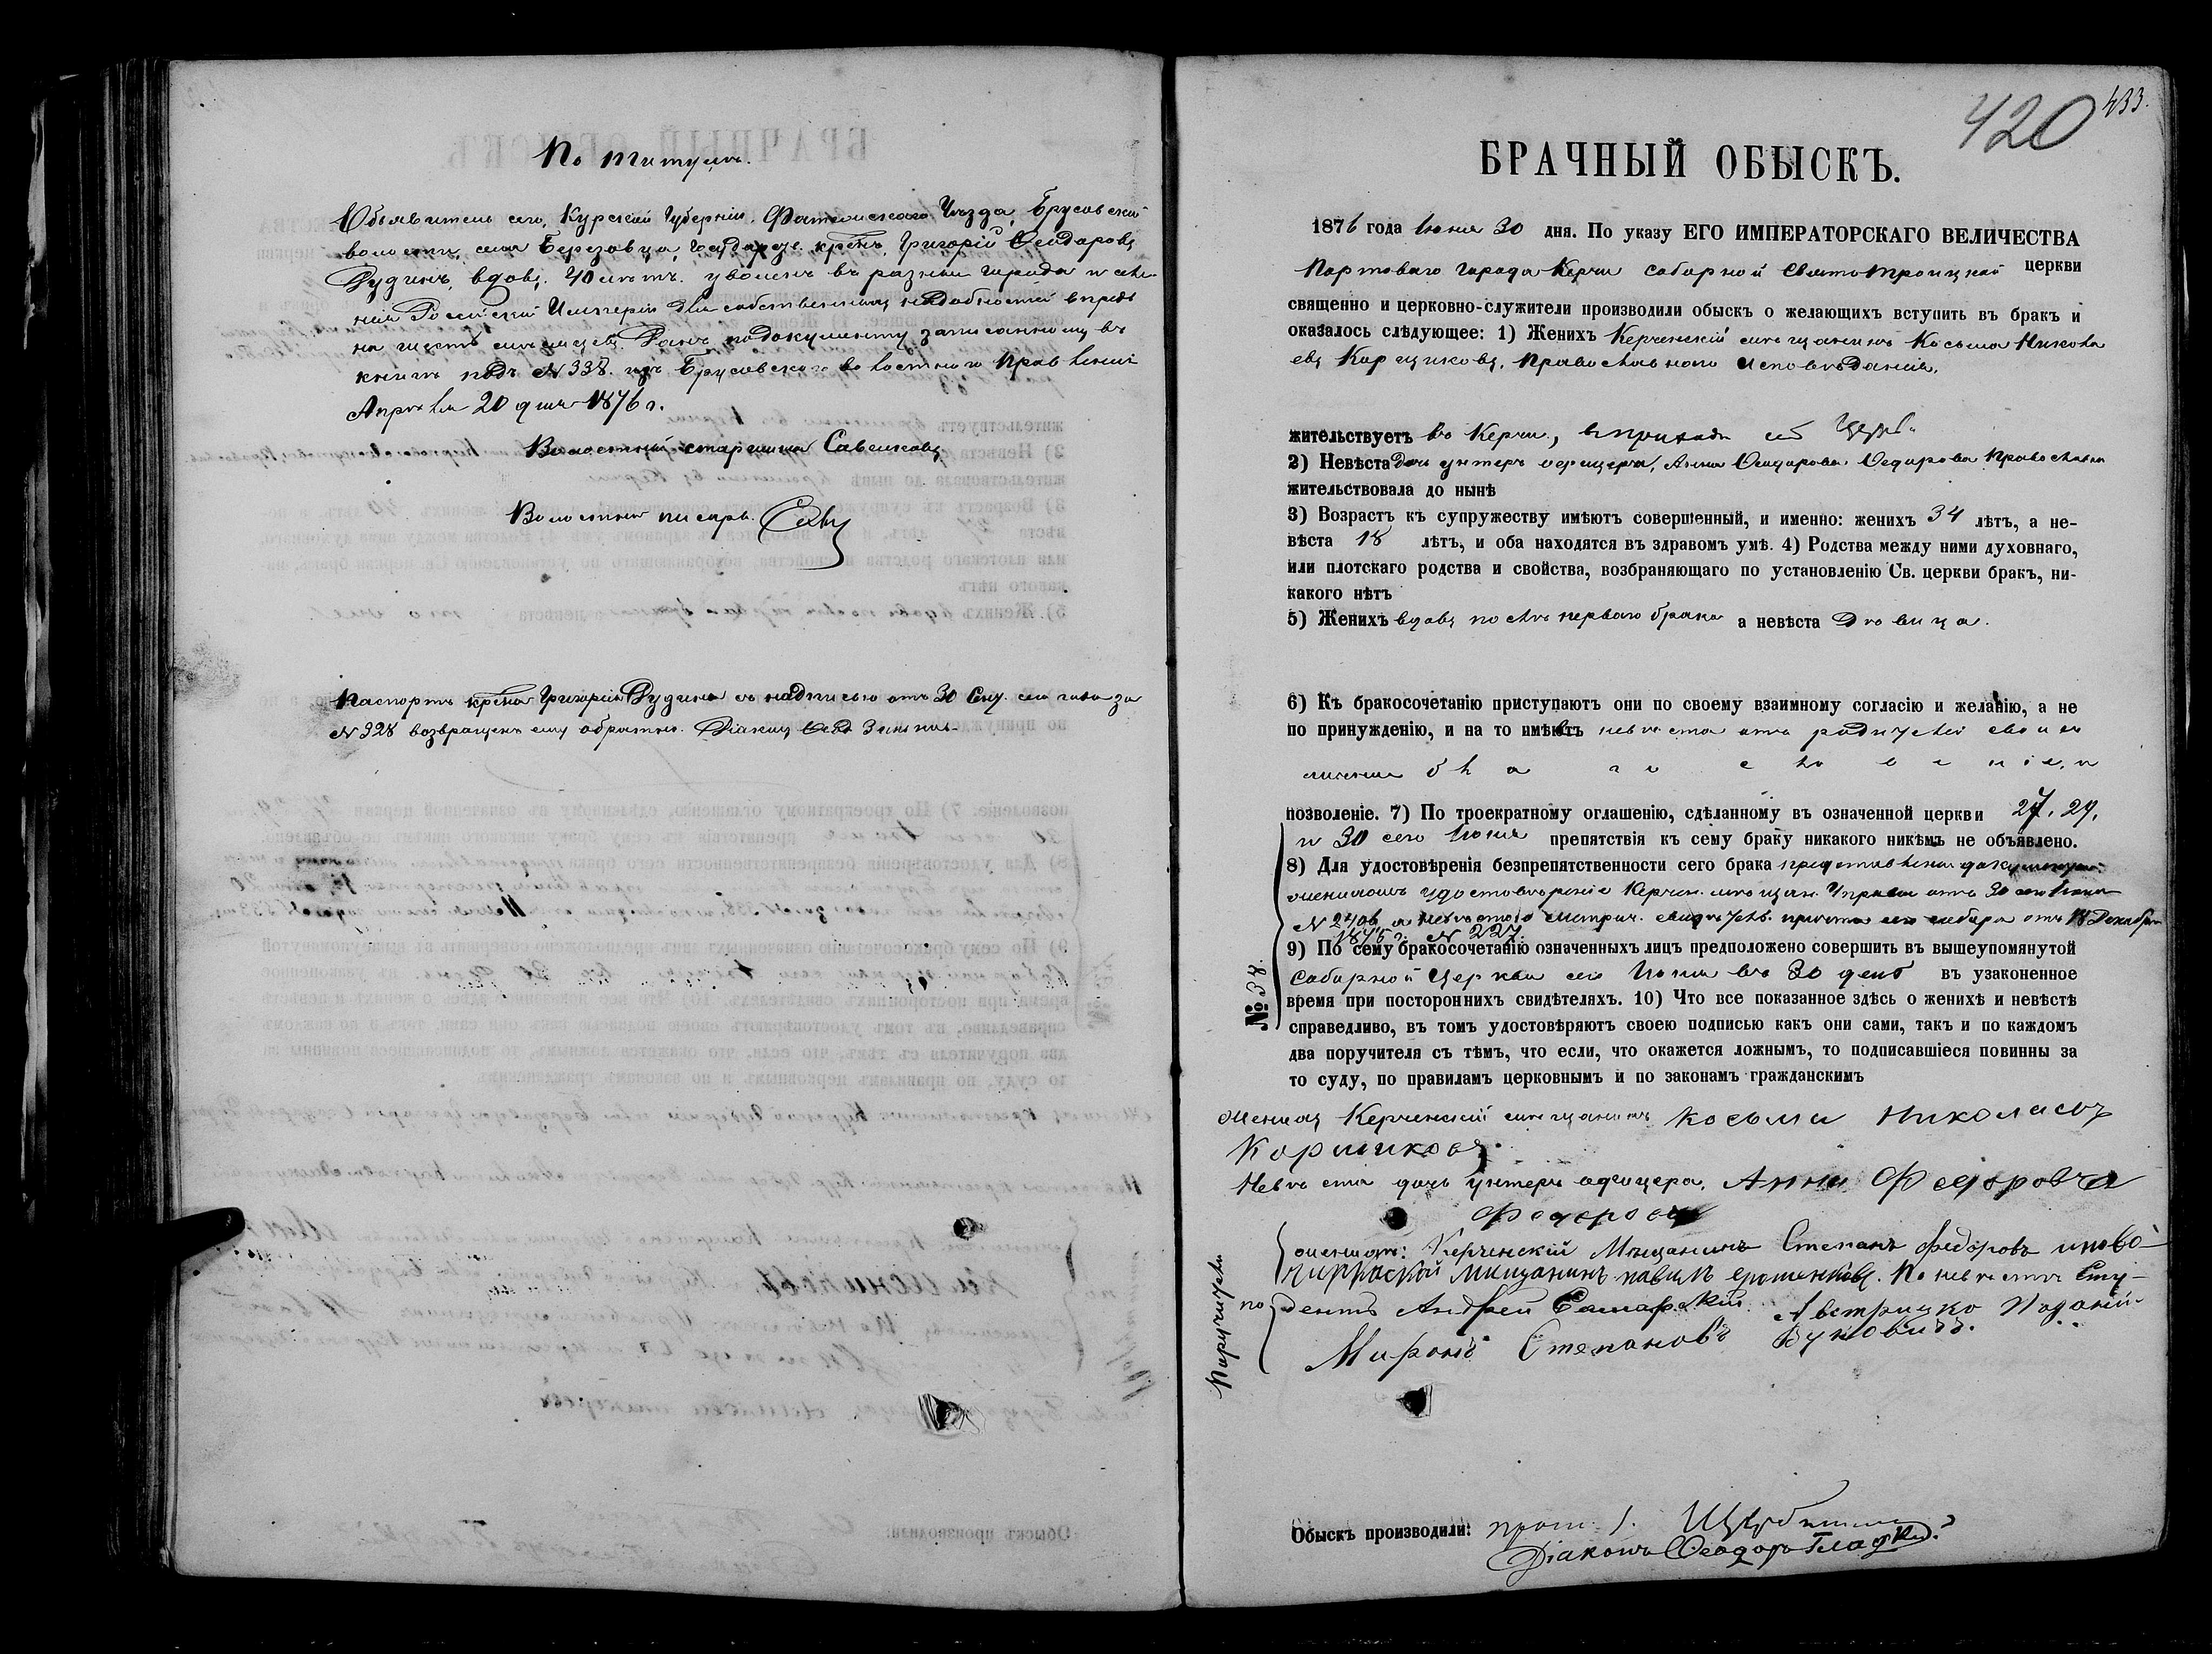 По титулѣ.
Объявитель сего, Курской Губерніи, Фатежскаго Уѣзда, Брусовской
волости, села Березовца, Государств. крест. Григорій Ѳеодоровъ
Рудинъ, вдовъ, 40 лѣтъ. уволенъ въ разные города и селе-
нія Россійской Имперіи для собственныхъ надобностей впредь
на шесть мѣсяцевъ. Данъ по документу записанному въ
книгѣ подъ № 338. изъ Брусовскаго волостнаго Правленія
Апрѣля 20 дня 1876 г.
Волостной старшина Савенковъ
Волостной писарь
Паспортъ крестьн. Григорія Рудина съ надписью отъ 30 сего за
№ 328 возвращенъ ему обратно. Діаконъ
420 433.
БРАЧНЫЙ ОБЫСКЪ.
1876 года Іюня 30 дня. По указу ЕГО ИМПЕРАТОРСКАГО ВЕЛИЧЕСТВА
Портоваго города Керчи соборной Святотроицкой церкви
священно и церковно-служители производили обыскъ о желающихъ вступить въ бракъ и
оказалось слѣдующее: 1) Женихъ Керченскій мѣщанинъ Косьма Никола
евъ Корщиковъ, Православнаго исповѣданія,
жительствуетъ въ Керчи, въ приходѣ сей церкви
2) Невѣста Дочь унтеръ офицера, Анна Ѳеодорова Ѳедорова Православна
жительствовала до нынѣ
3) Возрастъ къ супружеству имѣютъ совершенный, и именно: женихъ 34 лѣтъ, а не-
вѣста 18 лѣтъ, и оба находятся въ здравомъ умѣ. 4) Родства между ними духовнаго,
или плотскаго родства и свойства, возбраняющаго по установленію Св. церкви бракъ, ни-
какого нѣтъ
5) Женихъ вдовъ послѣ перваго брака а невѣста Дѣвица.
6) Къ бракосочетанію приступаютъ они по своему взаимному согласію и желанію, а не
по принужденію, и на то имѣютъ невѣста отъ родителей своихъ
благословеніе, и
позволеніе. 7) По троекратному оглашенію, сдѣланному въ означенной церкви 27, 29,
и 30 сего Іюня препятствія къ сему браку никакого никѣмъ не объявлено.
8) Для удостовѣренія безпрепятственности сего брака представлены документы:
женихомъ удостовѣреніе Керчен. мѣщан. Управы отъ 30 сего Іюня
№ 2406 а невѣстою метрич. свидѣт. причта сего собора отъ 18 Декабря
1875 г. № 227.
9) По сему бракосочетанію означенныхъ лицъ предположено совершить въ вышеупомянутой
Соборной Церкви сего Іюня въ 30 день въ узаконенное
время при постороннихъ свидѣтеляхъ. 10) Что все показанное здѣсь о женихѣ и невѣстѣ
справедливо, въ томъ удостовѣряютъ своею подписью какъ они сами, такъ и по каждомъ
два поручителя съ тѣмъ, что если, что окажется ложнымъ, то подписавшіеся повинны за
то суду, по правиламъ церковнымъ и по законамъ гражданскимъ
№ 38.
Женихъ Керченскій мѣщанинъ Косьма Николаевъ
Корщиковъ.
Невѣста дочь унтеръ офицера, Анна Федоровна
Федорова
Поручители по
женихѣ: Керченскій Мѣщанинъ Степанъ Федоровъ и ново-
черкаской мищанинъ Павилъ Ерошенковъ. По невѣстѣ Сту-
дентъ Андрей Самарскій Австрицко Поданій
Миронъ Степановъ Вуковичъ.
Обыскъ производили: прот. І.
Діаконъ Ѳеодоръ Гладкій